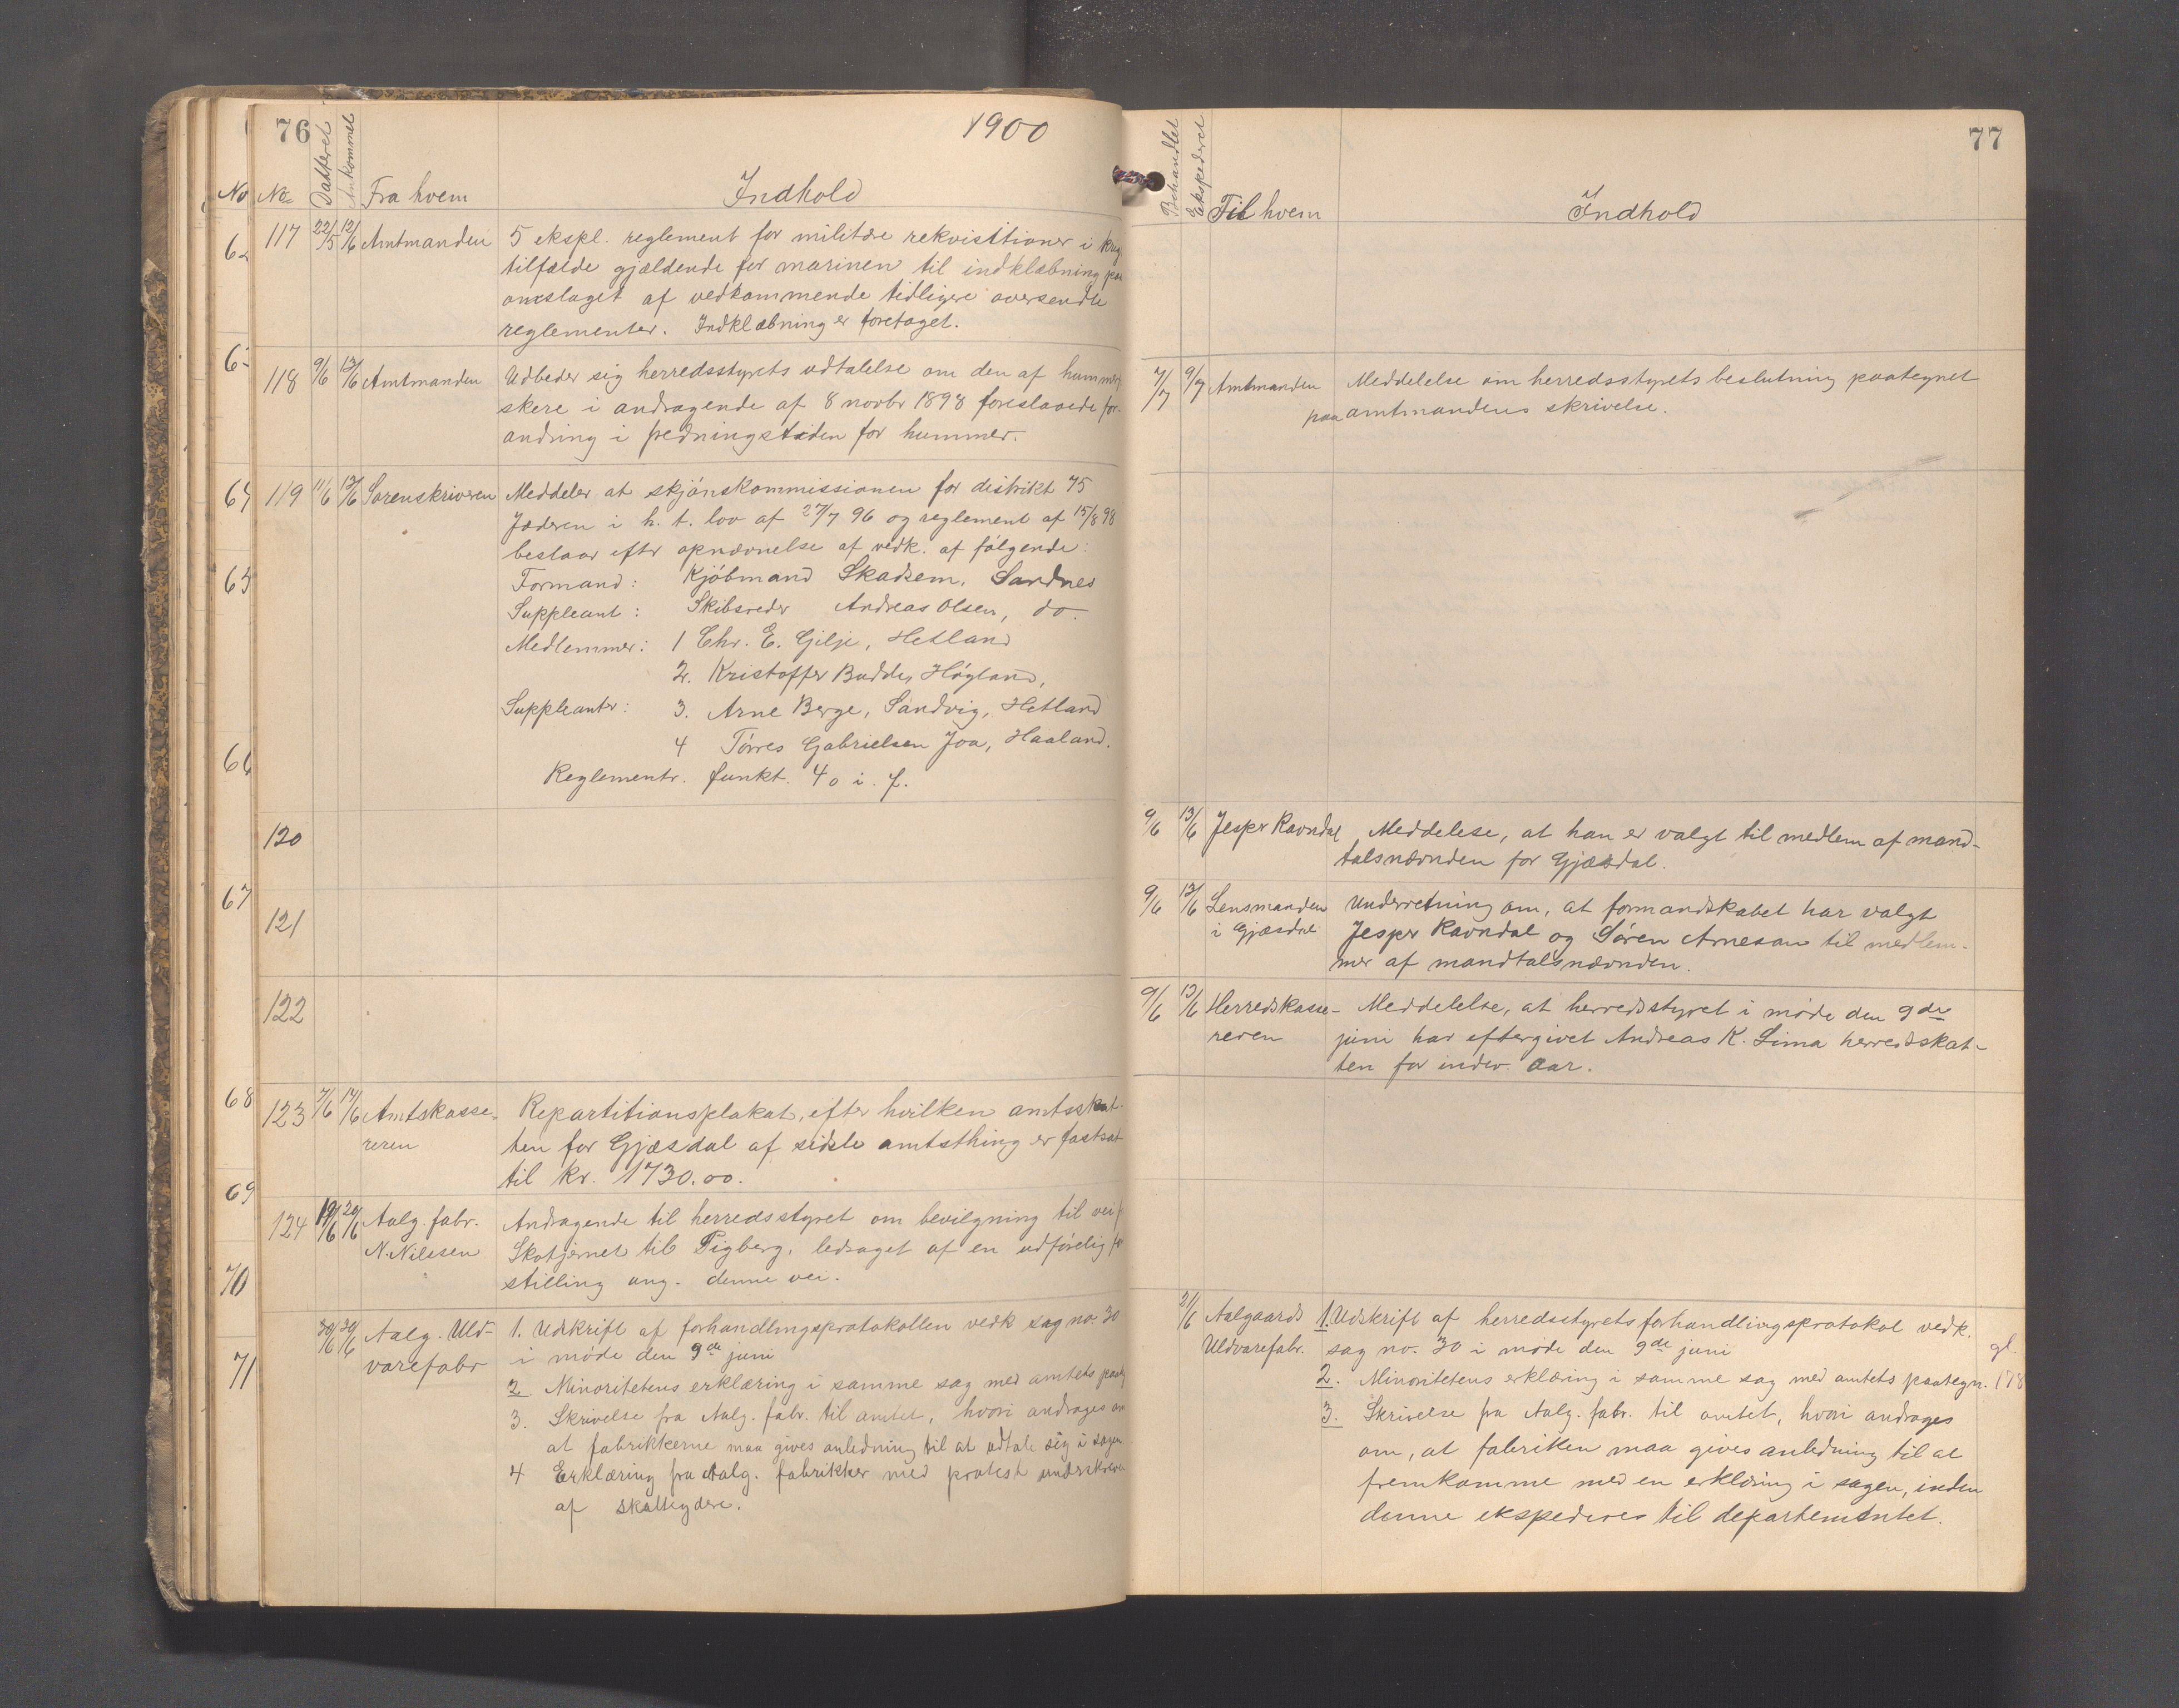 76
1900
No
No
Datteret
Ankommet
Fra hvem
Indhold
117 22/5 12/6 Amtmanden 5 ekspl. reglement for militære rekvisitioner i krig
tilfælde gjældende for marinen til indklæbning paa
omslaget af vedkommende tidligere oversendte
reglementer. Indklæbning er foretaget.
118 9/6 13/6 Amtmanden Udbeder sig herredsstyrets udtalelse om den af hummerfi
skere i andragende af 8 novbr 1898 foreslaaede for-
andring i fredningstiden for hummer.
119 11/6 12/6 Sorenskriveren Meddeler at skjónskommissionen for distrikt 75
Jæderen i h. t. lov af 27/7 96 og reglement af 15/8 98
bestaar eftr opnævnelse af vedk. af fólgende:
Formand: Kjóbmand Skadsem, Sandnes
Suppleant: Skibsreder Andreas Olsen, do.
Medlemmer: 1 Chr. E. Gilje, Hetland
2. Kristoffer Budde, Hógland,
Suppleanter: 3. Arne Berge, Sandvig, Hetland
4 Tórres Gabrielsen Joa, Haaland.
Reglementr. funkt. 40 i. f.
120
121
122
123 7/6 14/6 Amtskasse- Repartitionsplakat, efter hvilken amtsskat-
reren ten for Gjæsdal af sidste amtsthing er fastsat
til kr. 1730.00.
124 19/6 20/6 Aalg. fabr. Andragende til herredsstyret om bevilgning til vei f
N. Nilesen Skotjernet til Pigberg, ledsaget af en udfórelig
stilling ang. denne vei.
20/6 20/6 Aalg. Uld- 1. Udskrift af forhandlingsprotokollen vedk sag no. 30
varefabr i móde den 9de juni
2 Minoritetens erklæring i samme sag med amtets paateg
3. Skrivelse fra Aalg. fabr. til amtet, hvori andrages om
at fabrikkerne maa gives anledning til at udtale sig i sagen
4 Erklæring fra Aalg. fabrikker med protest underskreven
af skatteydere.
62
64
65
66
67
68
69
70
71
77
Behandlet
Ekspederet
Til hvem
Indhold
7/7 9/7 Amtmanden Meddelelse om herredsstyrets beslutning paategnet
paa amtmandens skrivelse.
9/6 13/6 Jesper Ravndal Meddelese, at han er valgt til medlem af mand-
talsnævnden for Gjæsdal.
9/6 13/6 Lensmanden Underretning om, at formandskabet har valgt
i Gjæsdal Jesper Ravndal og Sóren Arnesan til medlem-
mer af mandtalsnævnden.
9/6 13/6 Herredskasse- Meddelelse, at herredsstyret i móde den 9de
reren juni har eftergivet Andreas K. Lima herredskat-
ten for indev. aar.
21/6 Aalgaards 1. Udskrift af herredsstyrets forhandlingsprotokol vedk.
Uldvarefabr. sag no. 30 i móde den 9de juni
2. Minoritetens erklæring i samme sag med amtets paategn.
3. Skrivelse fra Aalg. fabr. til amtet, hvori andrages
om, at fabriken maa gives anledning til at
fremkomme med en erklæring i sagen, inden
denne ekspederes til departementet.